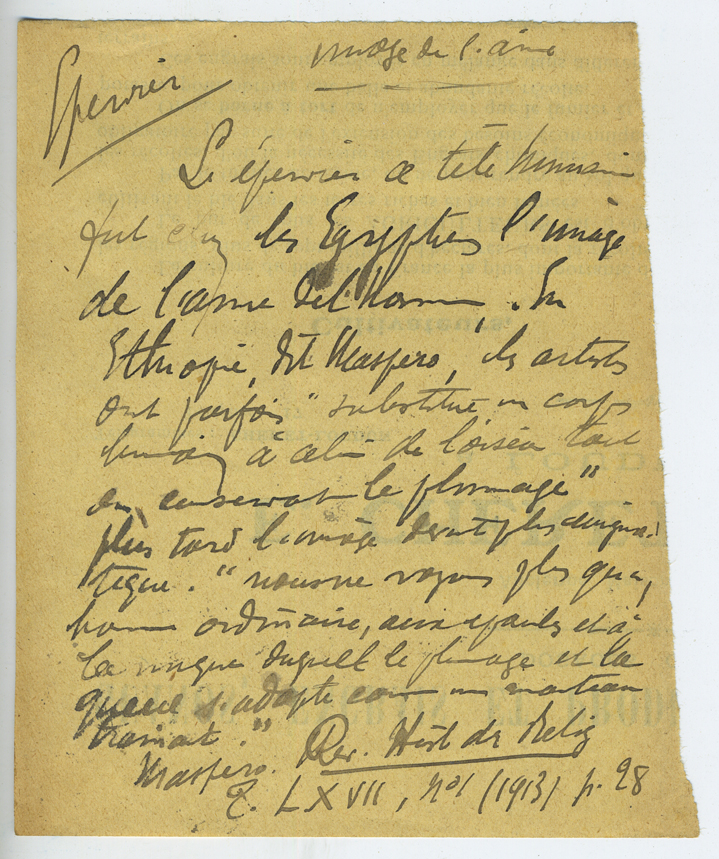 Epervier
image de l'âme
Le épervier à tête humain
fut chez les Egyptiens l'image
de l'ame de l'homme. En
Ethiopie, dit Maspero, "les artistes
ont parfois "substitué un corps
humain à celui de l'oiseau tout
en conservant le plumage"
plus tard l'image devint plus
"nous ne voyons plus qu'un
homme ordinaire, aux epaules et à
la nuque duquel le plumage et la
queue s'adapte comme un manteau
Maspero. Rev. Hist des Relig
T. LXVII, no 1 (1913) p. 28